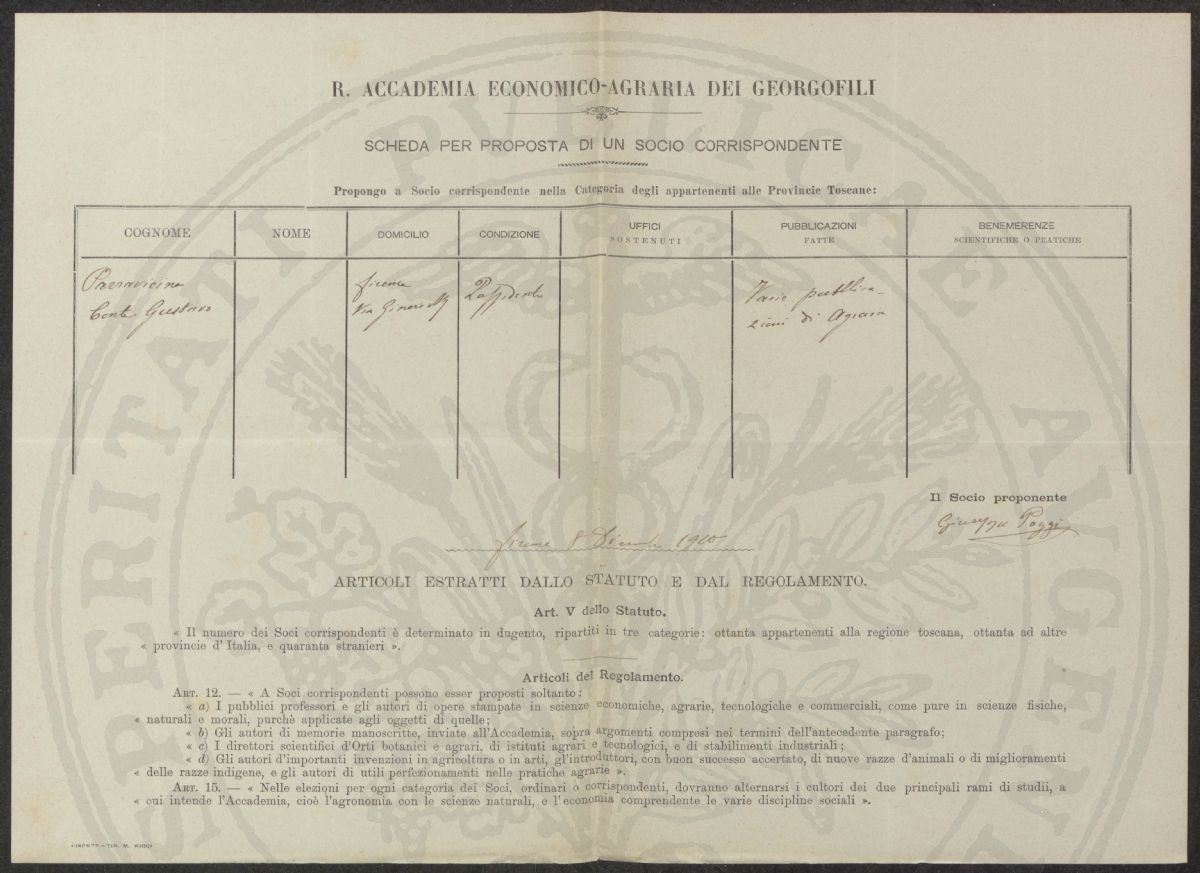 R. ACCADEMIA ECONOMICO-AGRARIA DEI GEORGOFILI
SCHEDA PER PROPOSTA DI UN SOCIO CORRISPONDENTE
Propongo a Socio corrispondente nella Categoria degli appartenenti alle Provincie Toscane:
COGNOME
NOME
DOMICILIO
CONDIZIONE
UFFICI
SOSTENUTI
PUBBLICAZIONI
FATTE
BENEMERENZE
SCIENTIFICHE O PRATICHE
Parravicino
Conte Gustavo
Firenze
Via Ginori
Possidente
Varie pubblica-
zioni di Agraria
Il Socio proponente
Giuseppe Poggi
Firenze 8 Dicembre 1900
ARTICOLI ESTRATTI DALLO STATUTO E DAL REGOLAMENTO.
Art. V dello Statuto.
« Il numero dei Soci corrispondenti è determinato in dugento, ripartiti in tre categorie: ottanta appartenenti alla regione toscana, ottanta ad altre
« provincie d'Italia, e quaranta stranieri ».
Articoli del Regolamento.
ART. 12. — « A Soci corrispondenti possono esser proposti soltanto:
« a) I pubblici professori e gli autori di opere stampate in scienze economiche, agrarie, tecnologiche e commerciali, come pure in scienze fisiche,
« naturali e morali, purchè applicate agli oggetti di quelle;
« b) Gli autori di memorie manoscritte, inviate all'Accademia, sopra argomenti compresi nei termini dell'antecedente paragrafo;
« c) I direttori scientifici d'Orti botanici e agrari, di istituti agrari e tecnologici, e di stabilimenti industriali;
« d) Gli autori d'importanti invenzioni in agricoltura o in arti, gl'introduttori, con buon successo accertato, di nuove razze d'animali o di miglioramenti
« delle razze indigene, e gli autori di utili perfezionamenti nelle pratiche agrarie ».
ART. 15. — « Nelle elezioni per ogni categoria dei Soci, ordinari o corrispondenti, dovranno alternarsi i cultori dei due principali rami di studii, a
« cui intende l'Accademia, cioè l'agronomia con le scienze naturali, e l'economia comprendente le varie discipline sociali ».
FIRENZE - TIP. M. RICCI
PROSPERITATI PUBLICAE AVGENDAE